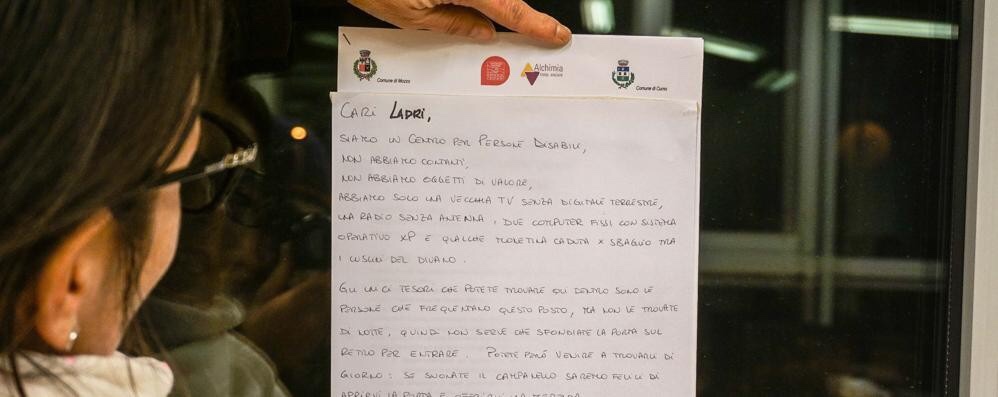 Comune di Mozzo
Alchimia
coop. sociale
Comune di Curno
CARI LADRI,
SIAMO UN CENTRO PER PERSONE DISABILI,
NON ABBIAMO CONTANTI,
NON ABBIAMO OGGETTI DI VALORE,
ABBIAMO SOLO UNA VECCHIA TV SENZA DIGITALE TERRESTRE,
UNA RADIO SENZA ANTENNA, DUE COMPUTER FISSI CON SISTEMA
OPERATIVO XP E QUALCHE MONETINA CADUTA X SBAGLIO TRA
I CUSCINI DEL DIVANO.
GLI UNICI TESORI CHE POTETE TROVARE QUI DENTRO SONO LE
PERSONE CHE FREQUENTANO QUESTO POSTO, MA NON LE TROVATE
DI NOTTE, QUINDI NON SERVE CHE SFONDIATE LA PORTA SUL
RETRO PER ENTRARE. POTETE PERÒ VENIRE A TROVARLI DI
GIORNO: SE SUONATE IL CAMPANELLO SAREMO FELICI DI
APRIRVI LA PORTA E